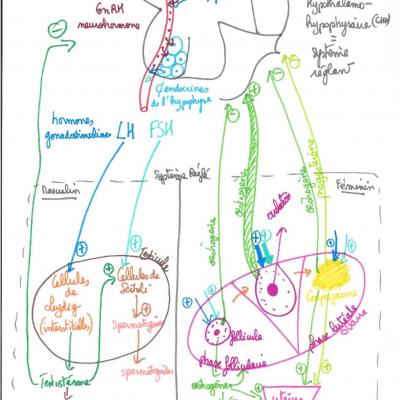 GnRH
neurohormone
hypothalamo-
hypophysaire (CHH)
=
système
réglant
¢ endocrines
de l'hypophyse
hormones
gonadostimulines
LH
FSH
Système Réglé
Masculin
Féminin
Testicule
Cellules
de
Leydig
(interstitielles)
Cellules de
Sertoli
spermatogénèse
spermatozoïdes
Testostérone
œstrogène
œstrogène
œstrogène
progestérone
ovulation
follicule
phase folliculaire
Corps jaune
phase lutéale
ovaire
œstrogènes
utérus